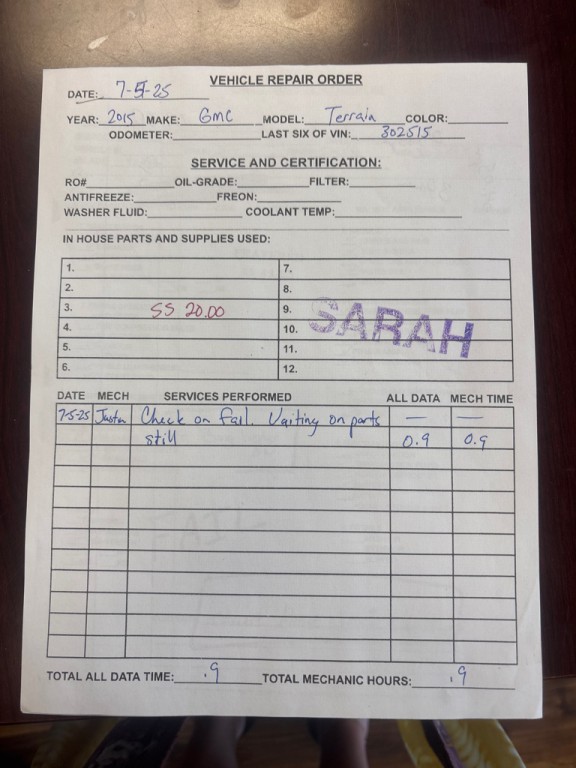 VEHICLE REPAIR ORDER
DATE: 7-5-25
YEAR: 2015 MAKE: GMC MODEL: Terrain COLOR:
ODOMETER: LAST SIX OF VIN: 302515
SERVICE AND CERTIFICATION:
RO# OIL-GRADE: FILTER:
ANTIFREEZE: FREON:
WASHER FLUID: COOLANT TEMP:
IN HOUSE PARTS AND SUPPLIES USED:
1. 7.
2. 8.
3. SS 20.00 9.
4. 10. SARAH
5. 11.
6. 12.
DATE MECH SERVICES PERFORMED ALL DATA MECH TIME
7-5-25 Justin Check on fail. Vaiting on parts — —
still 0.9 0.9
TOTAL ALL DATA TIME: .9 TOTAL MECHANIC HOURS: .9